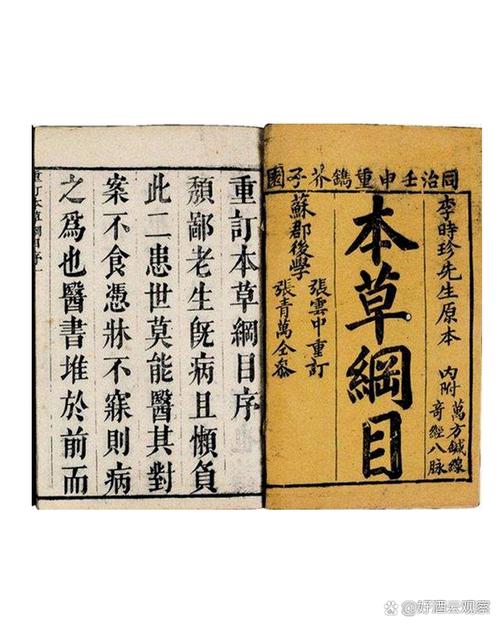 同治壬申重鐫芥子園
李時珍先生原本
内附
萬方鍼線
奇經八脉
本草綱目
蘇郡後學
張雲中重訂
張青萬仝參
重訂本草綱目序
頽鄙老生旣病且懶負
此二患世莫能醫其對
案不食憑牀不寐則病
之爲也醫書堆於前而
重訂本草綱目序一
@好酒云观察